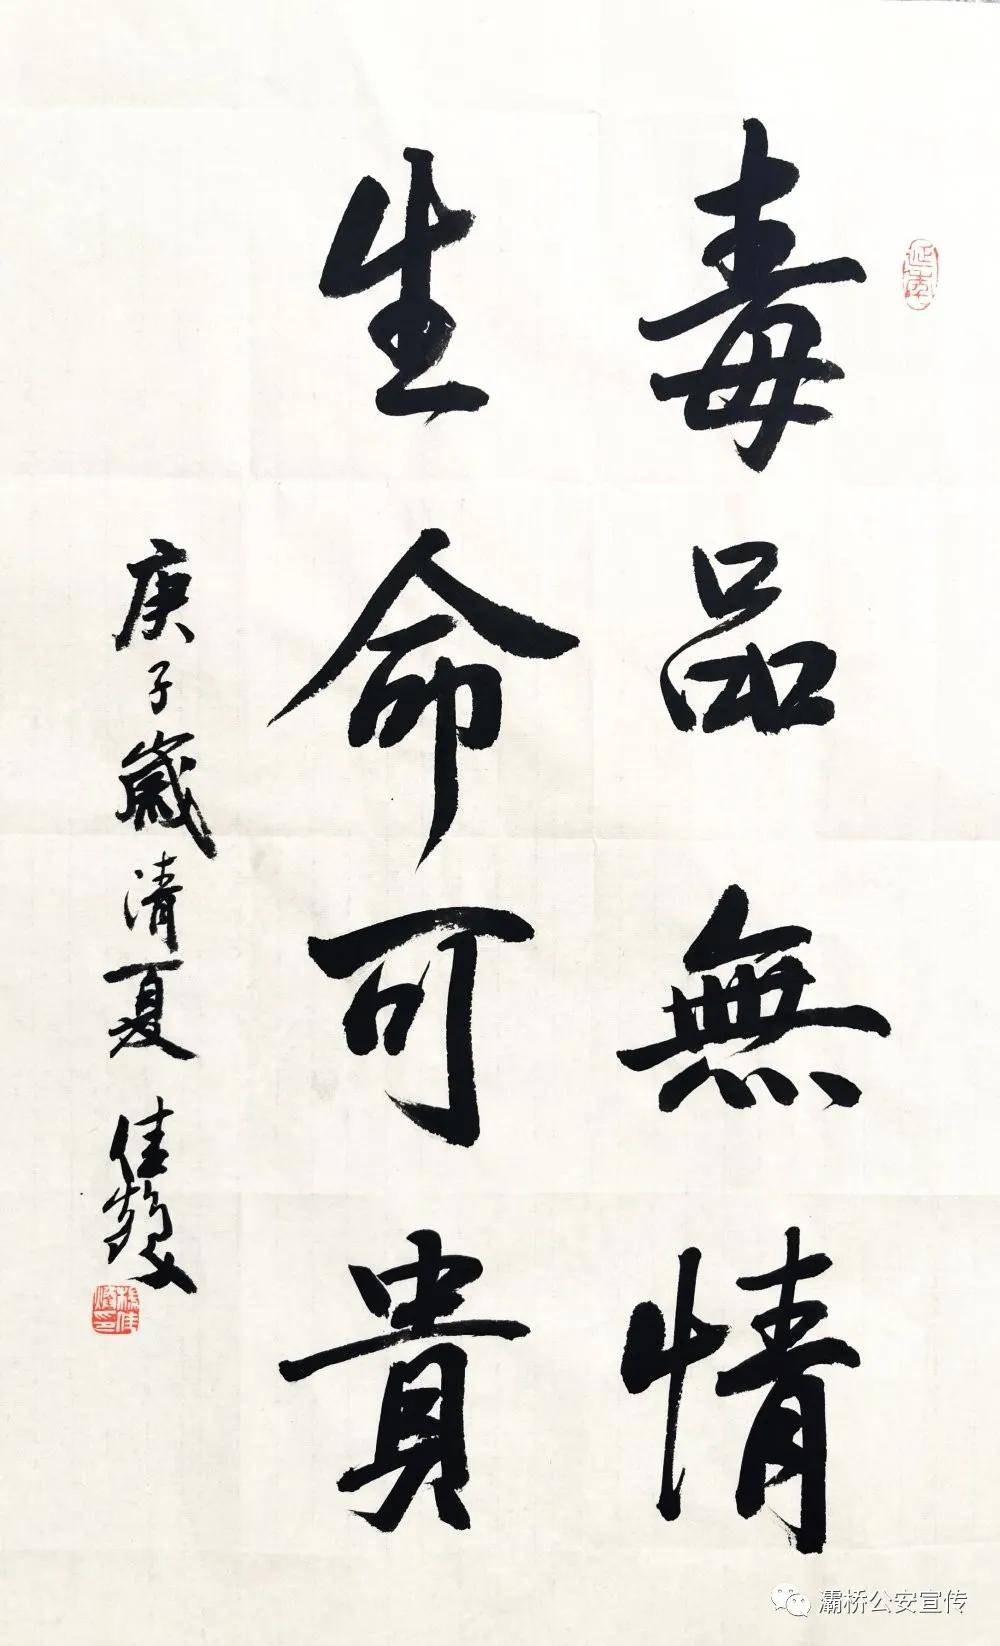 毒品無情
生命可貴
庚子歲清夏
灞桥公安宣传